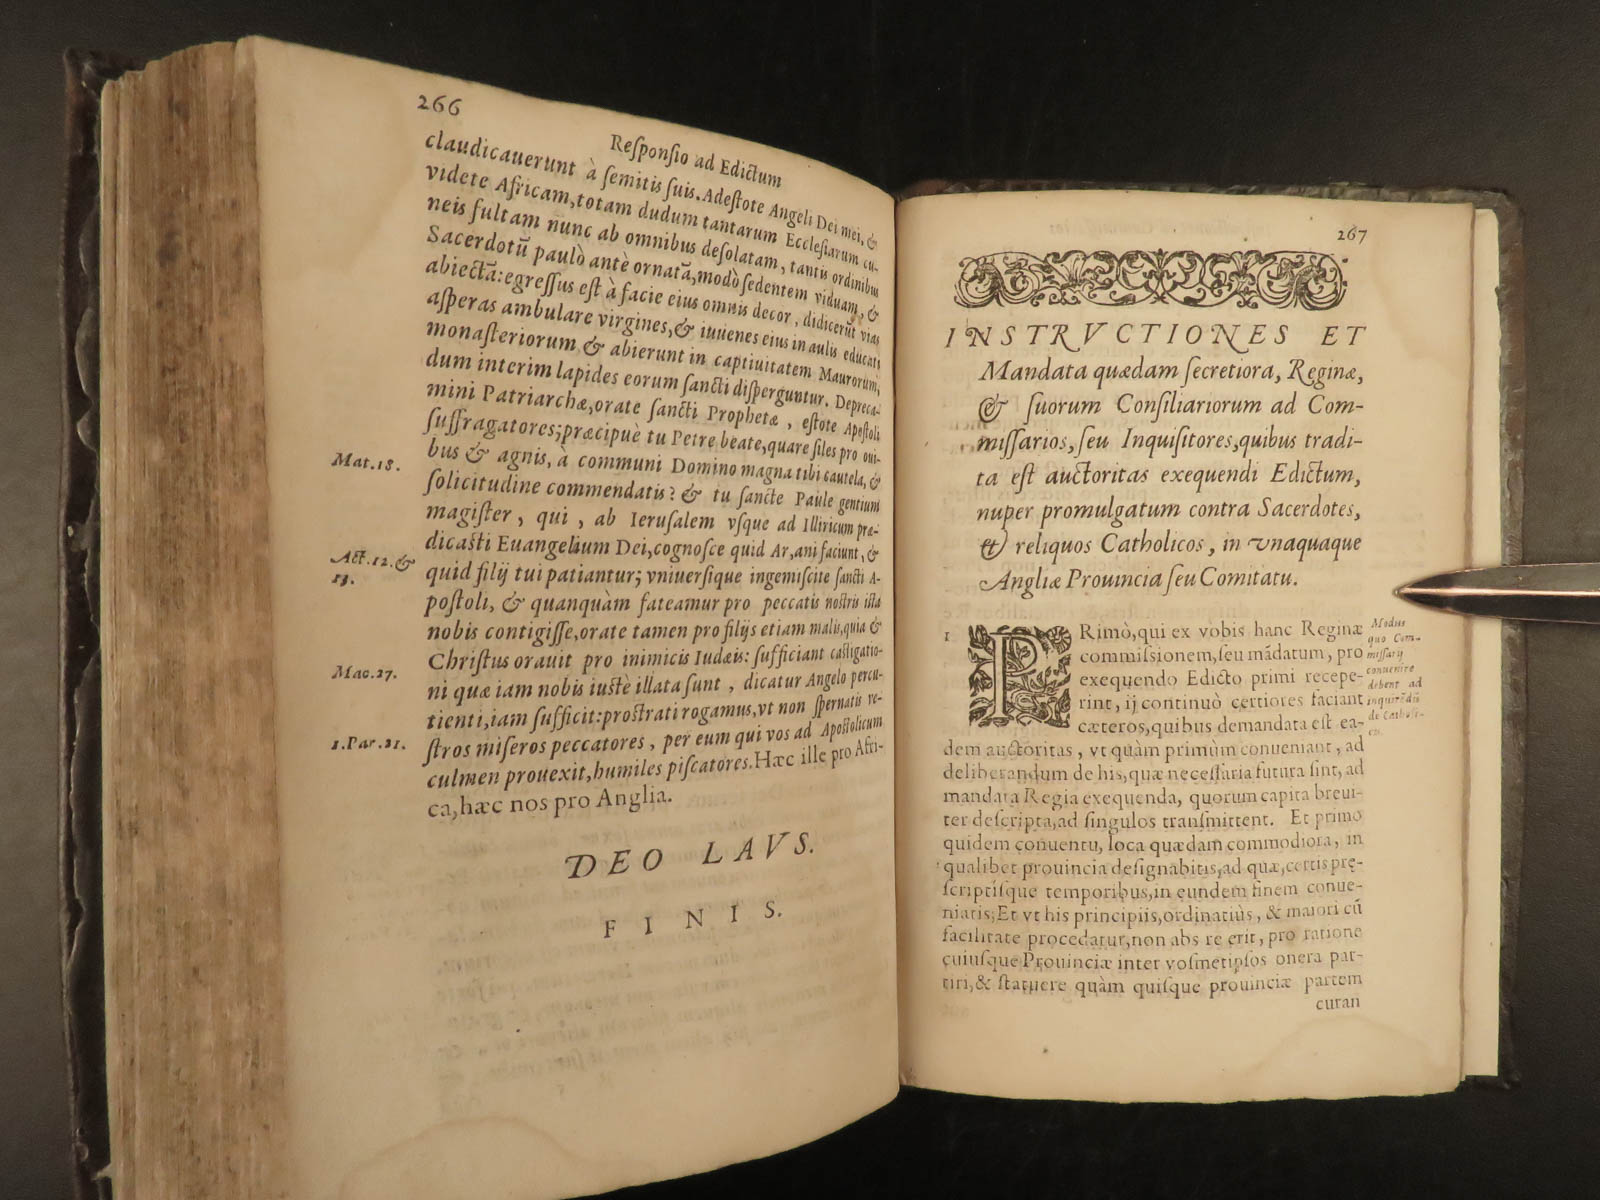 266
Reſponſio ad Edictum
claudicauerunt à ſemitis ſuis. Adeſtote Angeli Dei mei, &
videte Africam, totam dudum tantarum Eccleſiarum cu-
neis fultam nunc ab omnibus deſolatam, tantis ordinibus
Sacerdotū paulò antè ornatā, modò ſedentem viduam, &
abiectā: egreſſus eſt à facie eius omnis decor, didicerūt vias
aſperas ambulare virgines, & iuuenes eius in aulis educati
monaſteriorum & abierunt in captiuitatem Maurorum,
dum interim lapides eorum ſancti diſperguntur. Depreca-
mini Patriarchæ, orate ſancti Prophetæ, eſtote Apoſtoli
ſuffragatores; præcipuè tu Petre beate, quare ſiles pro oui-
bus & agnis, à communi Domino magna tibi cautela, &
ſolicitudine commendatis? & tu ſancte Paule gentium
magiſter, qui, ab Ieruſalem vſque ad Illiricum præ-
dicaſti Euangelium Dei, cognoſce quid Ar,ani faciunt, &
quid filij tui patiantur; vniuerſique ingemiſcite ſancti A-
poſtoli, & quanquàm fateamur pro peccatis noſtris iſta
nobis contigiſſe, orate tamen pro filijs etiam malis, quia &
Chriſtus orauit pro inimicis Iudæis: ſufficiant caſtigatio-
ni quæ iam nobis iuſtè illata ſunt, dicatur Angelo percu-
tienti, iam ſufficit: proſtrati rogamus, vt non ſpernatis ve-
ſtros miſeros peccatores, per eum qui vos ad Apoſtolicum
culmen prouexit, humiles piſcatores. Hæc ille pro Afri-
ca, hæc nos pro Anglia.
Mat. 18.
Act. 12. &
13.
Mac. 27.
1. Par. 21.
DEO LAVS.
FINIS.
267
INSTRVCTIONES ET
Mandata quædam ſecretiora, Reginæ,
& ſuorum Conſiliariorum ad Com-
miſſarios, ſeu Inquiſitores, quibus tradi-
ta eſt auctoritas exequendi Edictum,
nuper promulgatum contra Sacerdotes,
& reliquos Catholicos, in vnaquaque
Angliæ Prouincia ſeu Comitatu.
1
PRimò, qui ex vobis hanc Reginæ
commiſsionem, ſeu mādatum, pro
exequendo Edicto primi recepe-
rint, ij continuò certiores faciant
cæteros, quibus demandata eſt ea-
dem auctoritas, vt quàm primùm conueniant, ad
deliberandum de his, quæ neceſſaria futura ſint, ad
mandata Regia exequenda, quorum capita breui-
ter deſcripta, ad ſingulos tranſmittent. Et primo
quidem conuentu, loca quædam commodiora, in
qualibet prouincia deſignabitis, ad quæ, certis prę-
ſcriptiſque temporibus, in eundem finem conue-
niatis; Et vt his principiis, ordinatiùs, & maiori cū
facilitate procedatur, non abs re erit, pro ratione
cuiuſque Prouinciæ inter voſmetipſos onera par-
tiri, & ſtatuere quàm quiſque prouinciæ partem
curan
Modus
quo Com-
miſſarij
conuenire
debent ad
inquirēdū
de Catholi-
cis.